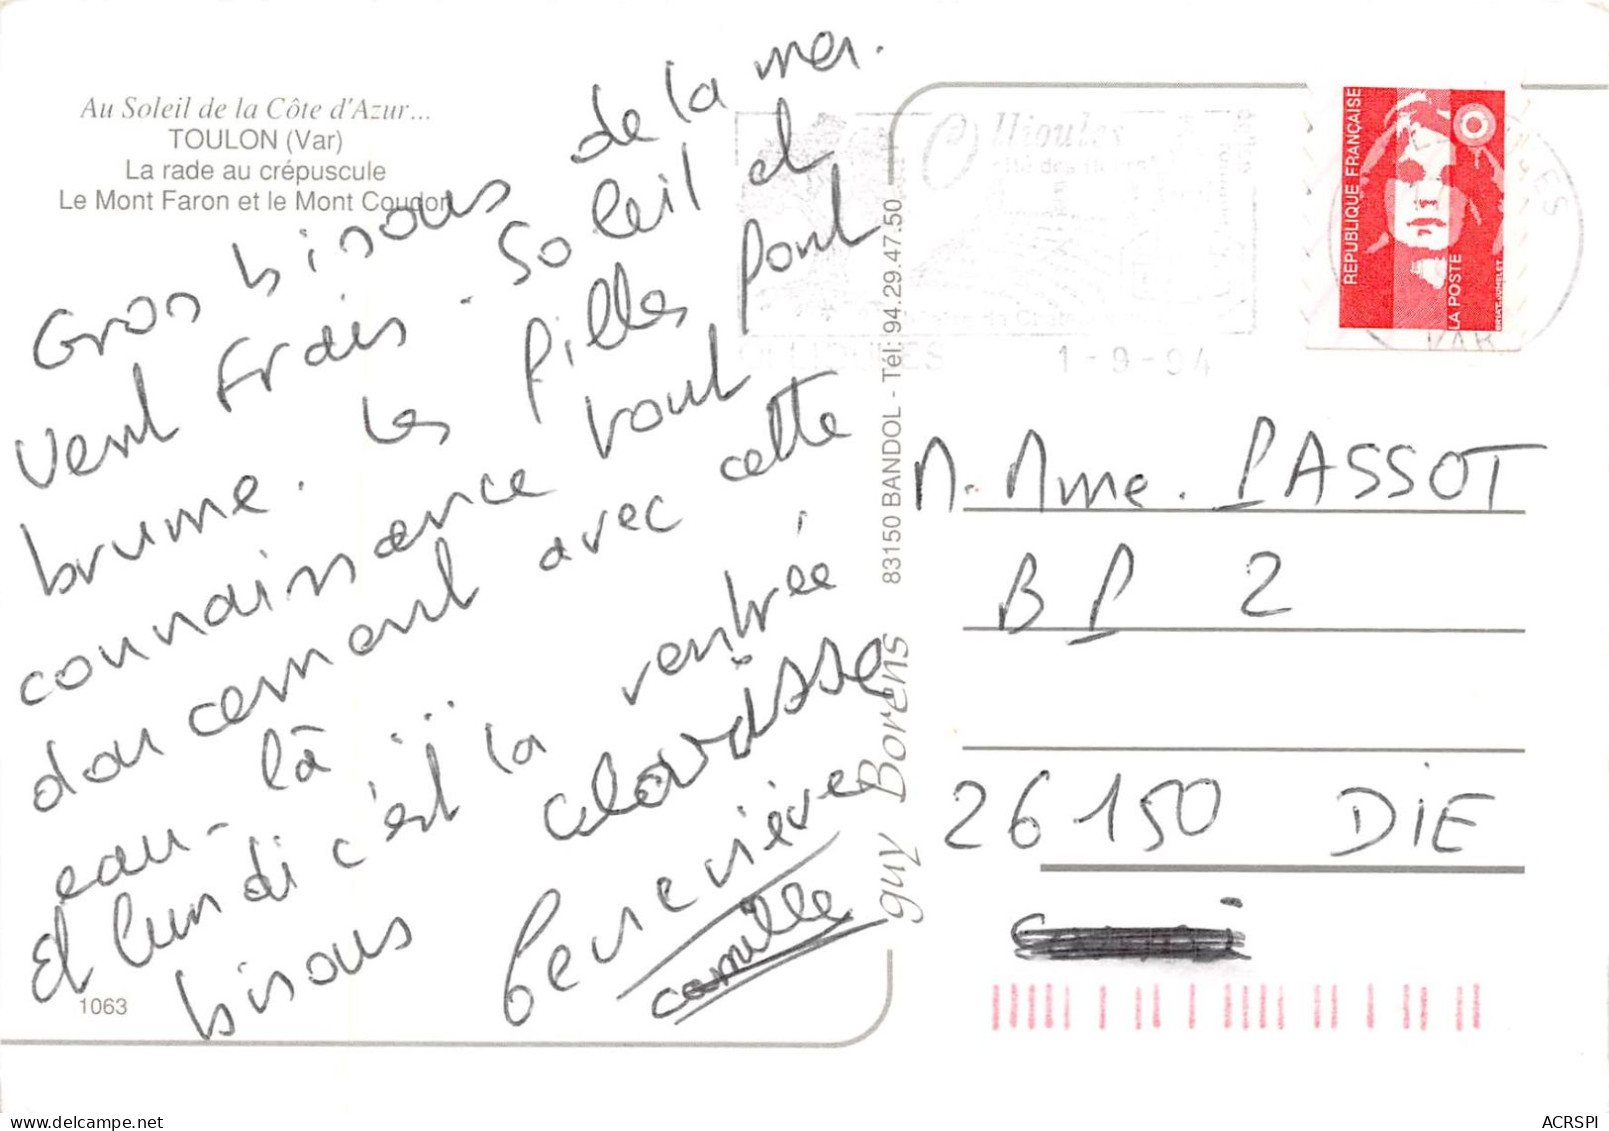 Au Soleil de la Côte d'Azur...
TOULON (Var)
La rade au crépuscule
Le Mont Faron et le Mont Coudon
Gros bisous de la mer.
Vent frais. Soleil et
brume. Les filles font
connaissance tout
doucement avec cette
eau-là...
Et lundi c'est la rentrée
bisous
Geneviève
camille
1063
guy Borens 83150 BANDOL - Tél. 94.29.47.50
Ollioules
OLLIOULES 1-9-94
VAR
REPUBLIQUE FRANÇAISE
LA POSTE
M. Mme. PASSOT
BP 2
26150 DIE
delcampe.net
ACRSPI